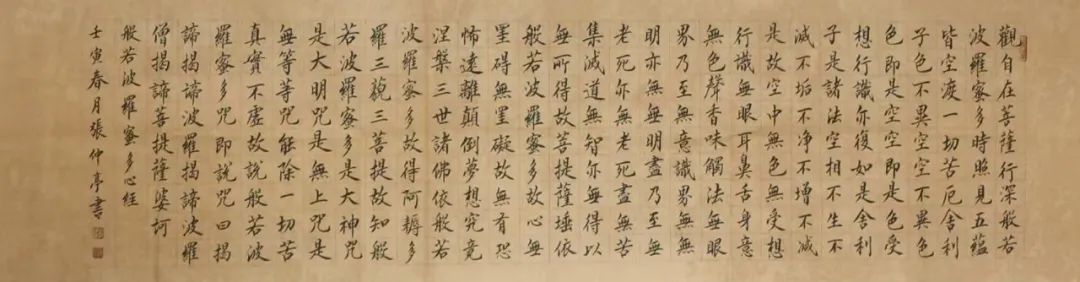 觀自在菩薩行深般若
波羅蜜多時照見五蘊
皆空渡一切苦厄舍利
子色不異空空不異色
色即是空空即是色受
想行識亦復如是舍利
子是諸法空相不生不
滅不垢不淨不增不減
是故空中無色無受想
行識無眼耳鼻舌身意
無色聲香味觸法無眼
界乃至無意識界無無
明亦無無明盡乃至無
老死亦無老死盡無苦
集滅道無智亦無得以
無所得故菩提薩埵依
般若波羅蜜多故心無
罣碍無罣礙故無有恐
怖遠離顛倒夢想究竟
涅槃三世諸佛依般若
波羅蜜多故得阿耨多
羅三藐三菩提故知般
若波羅蜜多是大神咒
是大明咒是無上咒是
無等等咒能除一切苦
真實不虛故說般若波
羅蜜多咒即說咒曰揭
諦揭諦波羅揭諦波羅
僧揭諦菩提薩婆訶
般若波羅蜜多心經
壬寅春月張仲亭書